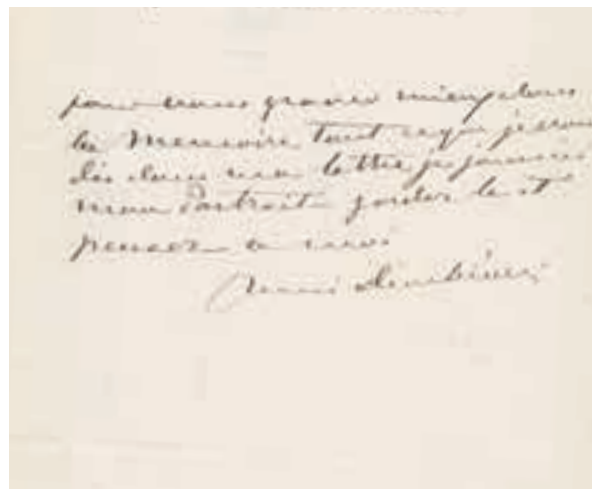 pour vous graver mieux dans
la Memoire tout ce que je vous
dis dans ma lettre je joins ici
mon Portrait gardez le et
pensez a moi